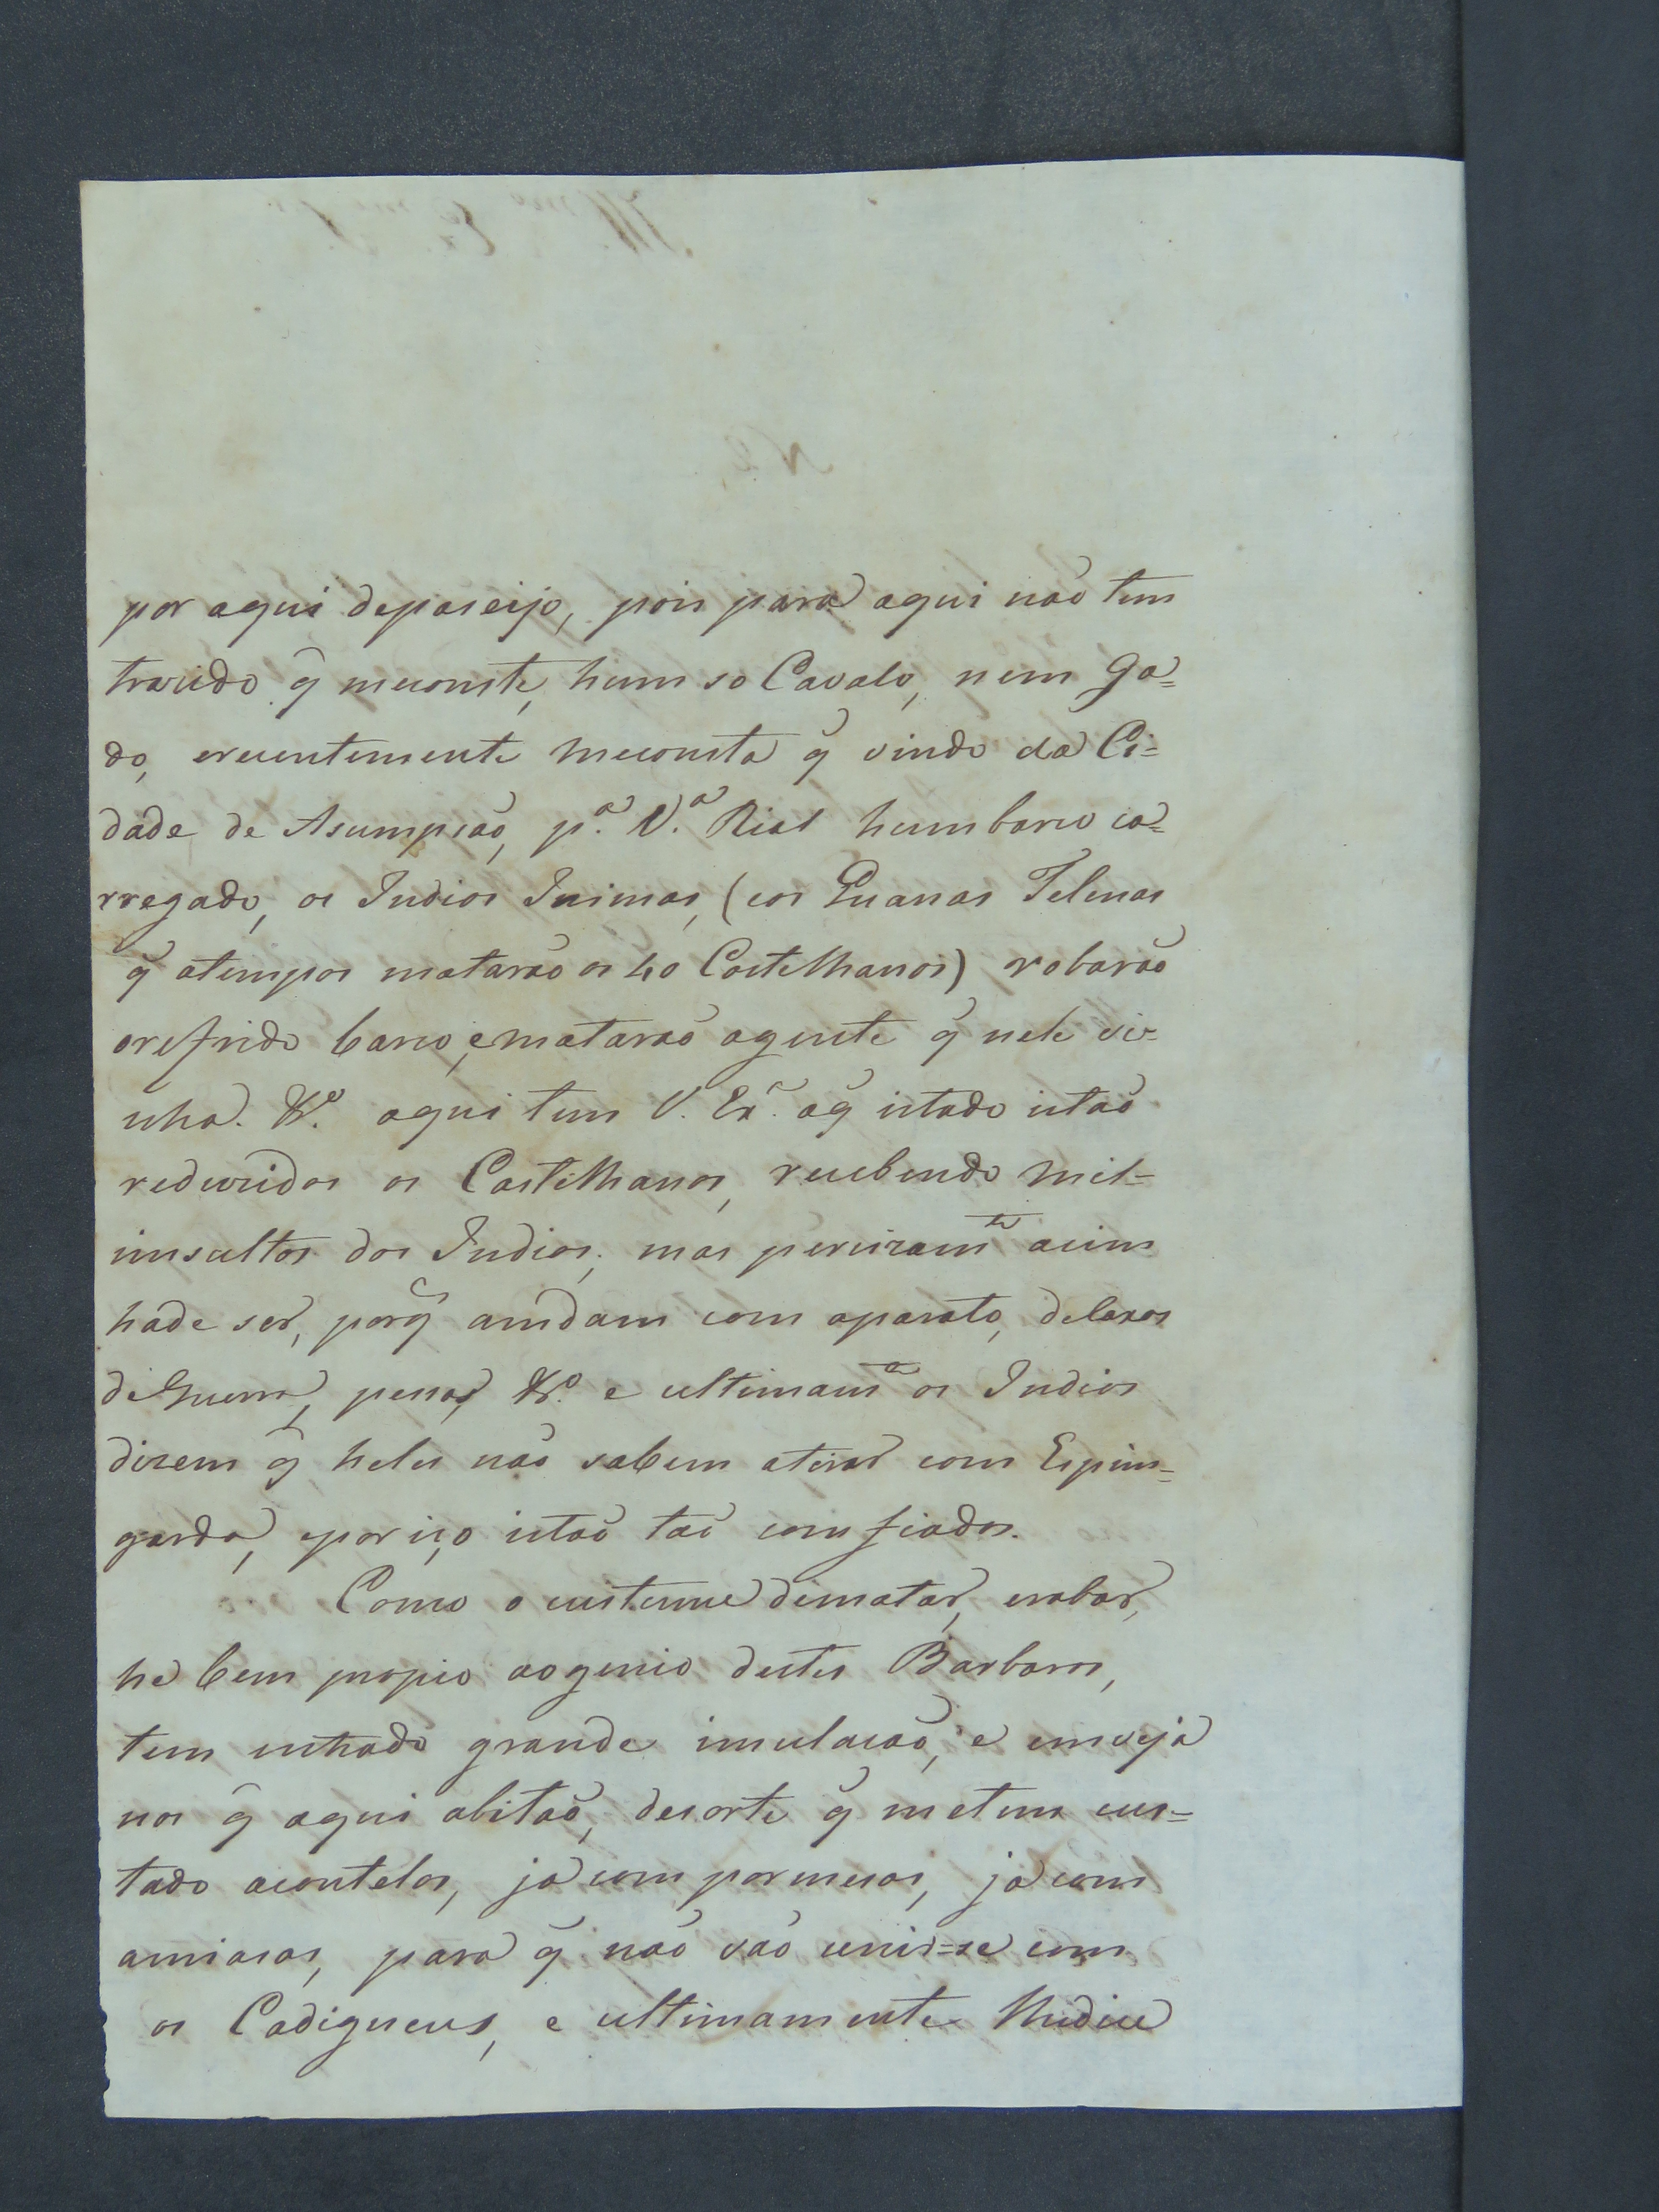 por aqui depaseijo, pois para aqui naõ tem
trazido q̃ meconste, hum so Cavalo, nem Ga=
do, erecentemente meconsta q̃ vindo da Ci=
dade de Asumpsaõ, p.ª V.ª Rial humbarco ca=
rregado, os Indios Inimas, (eos Guanas Telenas
q̃ atempos mataraõ os 40 Castelhanos) robaraõ
orefrido barco, emataraõ agente q̃ nele vi=
nha. &.º aqui tem V. Ex.ª aq̃ istado istaõ
reduzidos os Castilhanos, recebendo mil=
insultos dos Indios; mas percizam.te acim
hade ser, porq̃ amdam com aparato, delaxos
deGuerra, pessas, &.º e ultimam.e os Indios
dizem q̃ heles naõ sabem atirar com Espim=
garda, epor iço istaõ taõ comfiados.
Como o custume dematar, erobar,
he bem propio aogenio destes Barbaros,
tem entrado grande imulasaõ, e emveja
nos q̃ aqui abitaõ, desorte q̃ metem cus=
tado acontelos, ja com pormesas, ja com
amiasas, para q̃ naõ vaõ unir=se com
os Cadigueus, e ultimamente lhidice